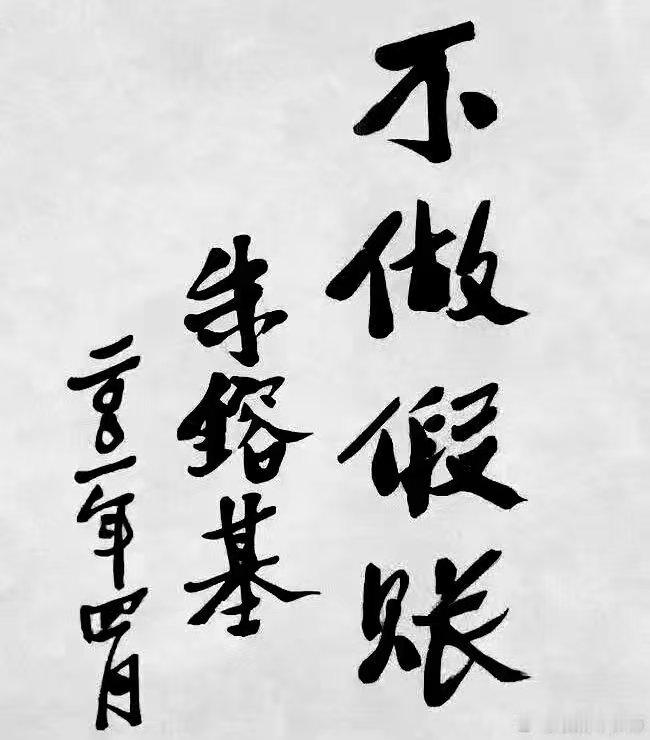 不做假账
朱鎔基
二〇〇一年四月